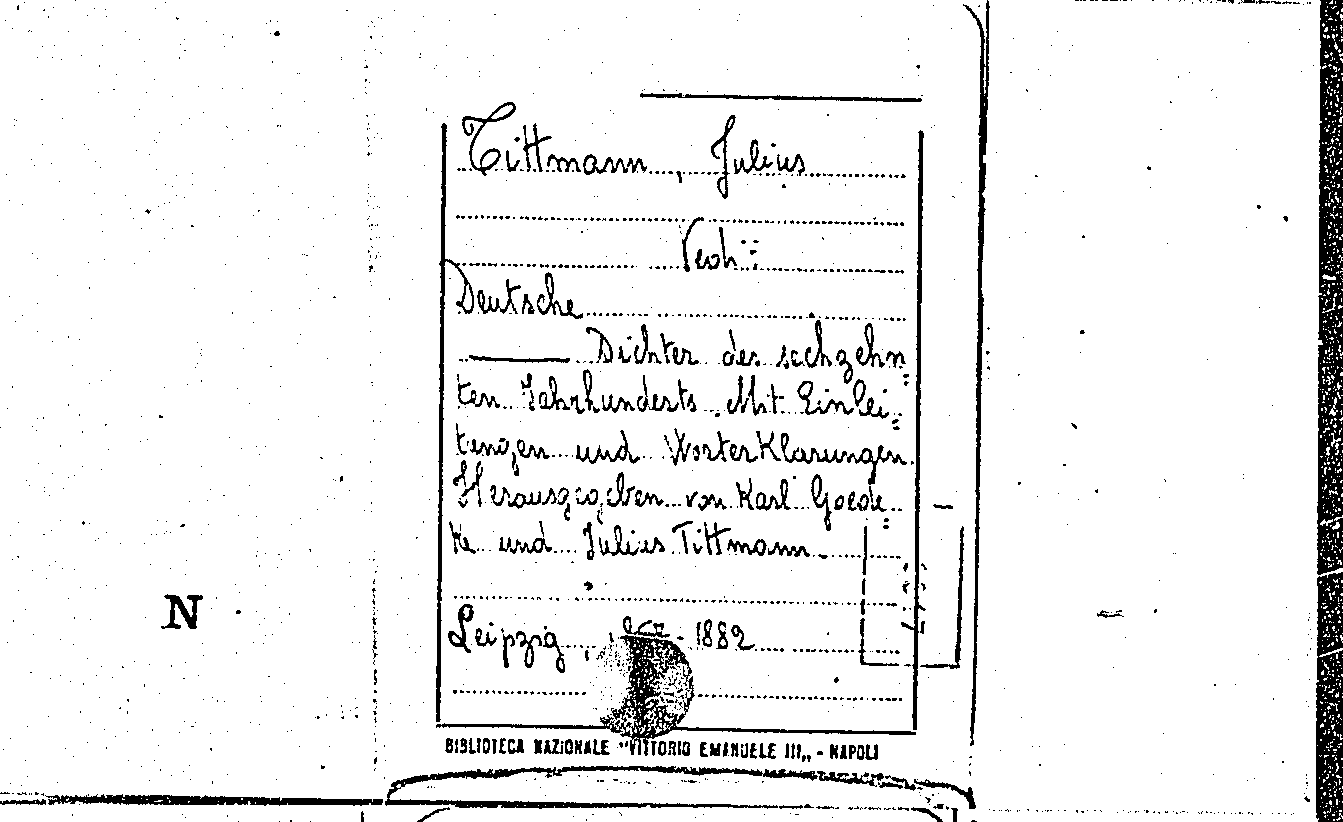 Tittmann, Julius
Vedi:
Deutsche
Dichter des sechzehn=
ten Jahrhunderts. Mit Einlei=
tungen und Worterklarungen.
Herausgegeben von Karl Goede=
ke und Julius Tittmann.
Leipzig, - 1882
N
BIBLIOTECA NAZIONALE "VITTORIO EMANUELE III„ - NAPOLI